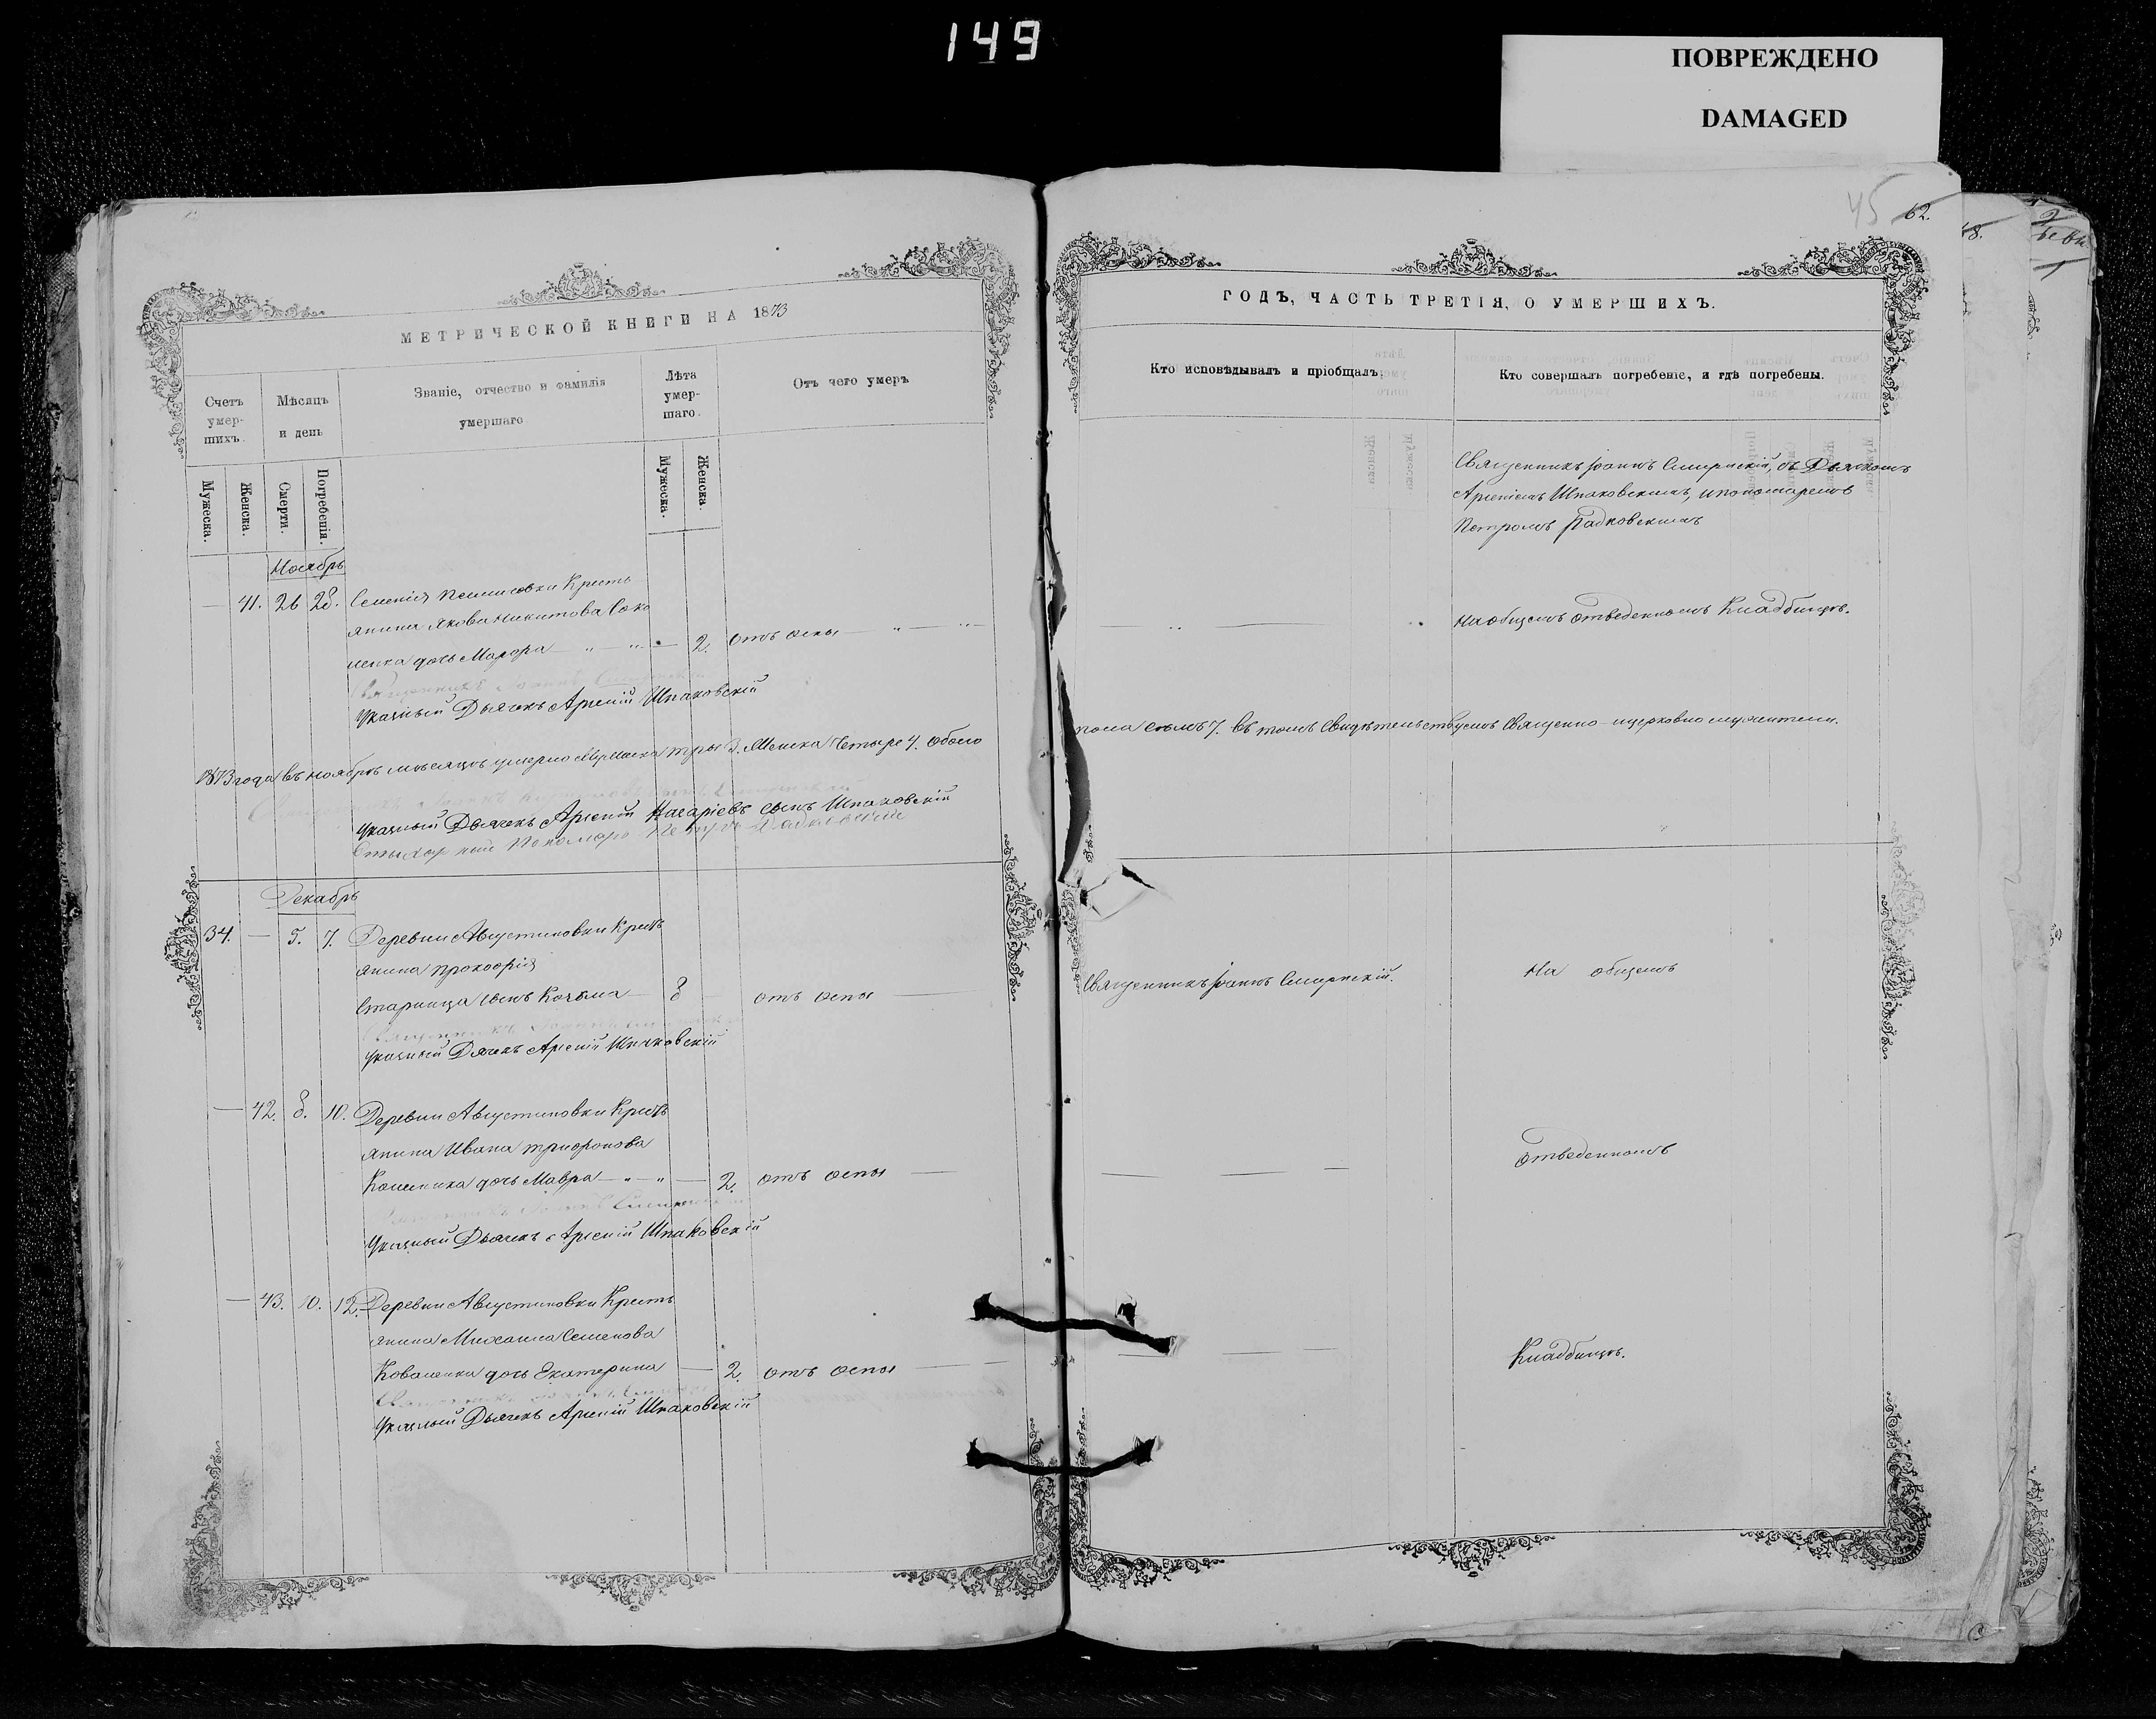 149
ПОВРЕЖДЕНО
DAMAGED
45 62.
МЕТРИЧЕСКОЙ КНИГИ НА 1873
Счетъ умер-шихъ.
Мѣсяцъ и день
Званіе, отчество и фамилія умершаго
Лѣта умер-шаго.
Отъ чего умеръ
Мужеска.
Женска.
Смерти.
Погребенія.
Мужеска.
Женска.
Ноябрь
41. 26 28. Семенія Кресть
янина Якова Никитова Соко
ленка дочь Марѳа 2. отъ оспы
Священникъ Іоаннъ
Указный Дьячекъ Арсеній Шпаковскій
1873 года въ ноябрѣ мѣсяцѣ умерло Мужеска три 3. Женска Четыре 4. обоего
Указный Дьячекъ Арсеній Назаріевъ сынъ Шпаковскій
Стихарный Пономарь Петръ Радковскій
Декабрь
34. — 5. 7. Деревни Августиновки Кресть
янина Прокофія
Старища сынъ Козьма 8 отъ оспы
Указный Дячекъ Арсеній Шпаковскій
— 42. 8. 10. Деревни Августиновки Кресть
янина Ивана Трифонова
дочь Мавра 2. отъ оспы
Указный Дьячекъ Арсеній Шпаковскій
— 43. 10. 12. Деревни Августиновки Кресть
янина Михаила Семенова
Коваленка дочь Екатерина — 2. отъ оспы
Указный Дьячекъ Арсеній Шпаковскій
ГОДЪ, ЧАСТЬ ТРЕТІЯ, О УМЕРШИХЪ.
Кто исповѣдывалъ и пріобщалъ.
Кто совершалъ погребеніе, и гдѣ погребены.
Священникъ Іоаннъ Смирнскій, съ Дьячкомъ
Арсеніемъ Шпаковскимъ, и пономаремъ
Петромъ Радковскимъ
На общемъ отведенномъ Кладбищѣ.
пола семь 7. въ томъ свидѣтельствуемъ Священно-церковно служители.
Священникъ Іоаннъ Смирнскій.
На общемъ
отведенномъ
Кладбищѣ.